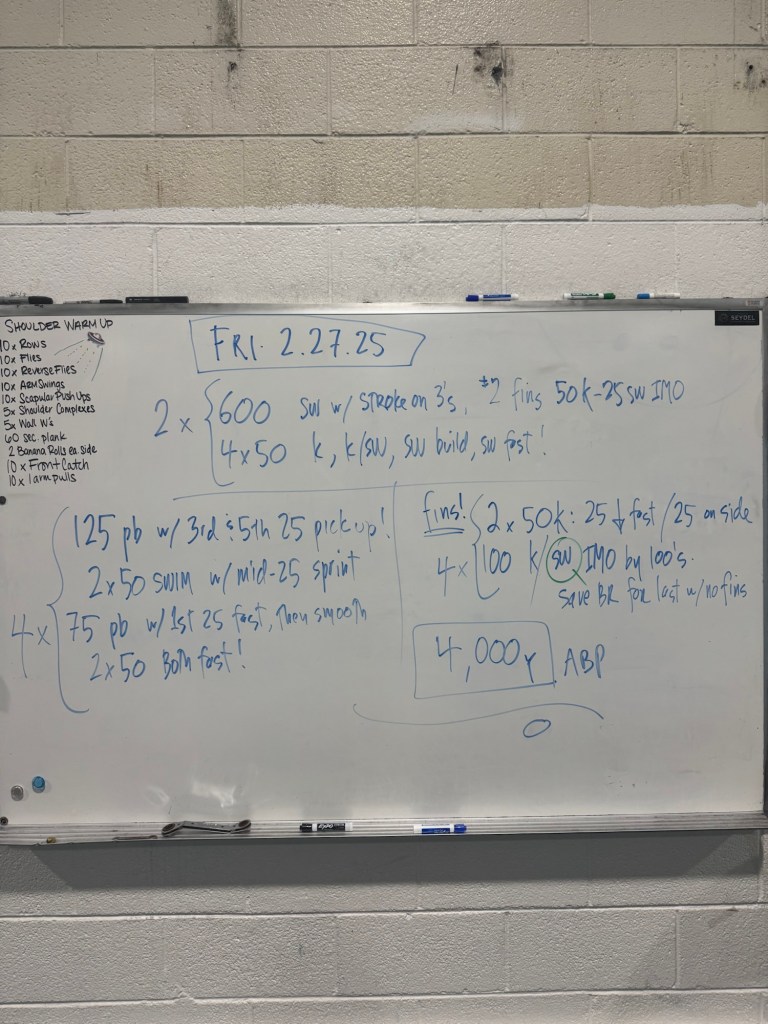 SHOULDER WARM UP
10x ROWS
10x Flies
10x Reverse Flies
10x ARM Swings
10x Scapular Push Ups
5x Shoulder Complexes
5x Wall W's
60 sec. plank
2 Banana Rolls ea. side
10x Front Catch
10x 1 arm pulls
KEYDEL
FRI. 2.27.25
2x
600 SW w/ STROKE on 3's, #2 fins 50K-25 SW IMO
4x50 K, K/SW, SW build, SW fast!
4x
125 pb w/ 3rd & 5th 25 pick up!
2x50 SWIM w/ mid-25 sprint
75 pb w/ 1st 25 fast, then smooth
2x50 Both fast!
fins!
4x
2x50K: 25 ↓ fast / 25 on side
100 K/SW IMO by 100's.
save BR for last w/ no fins
4,000Y ABP
EXPO